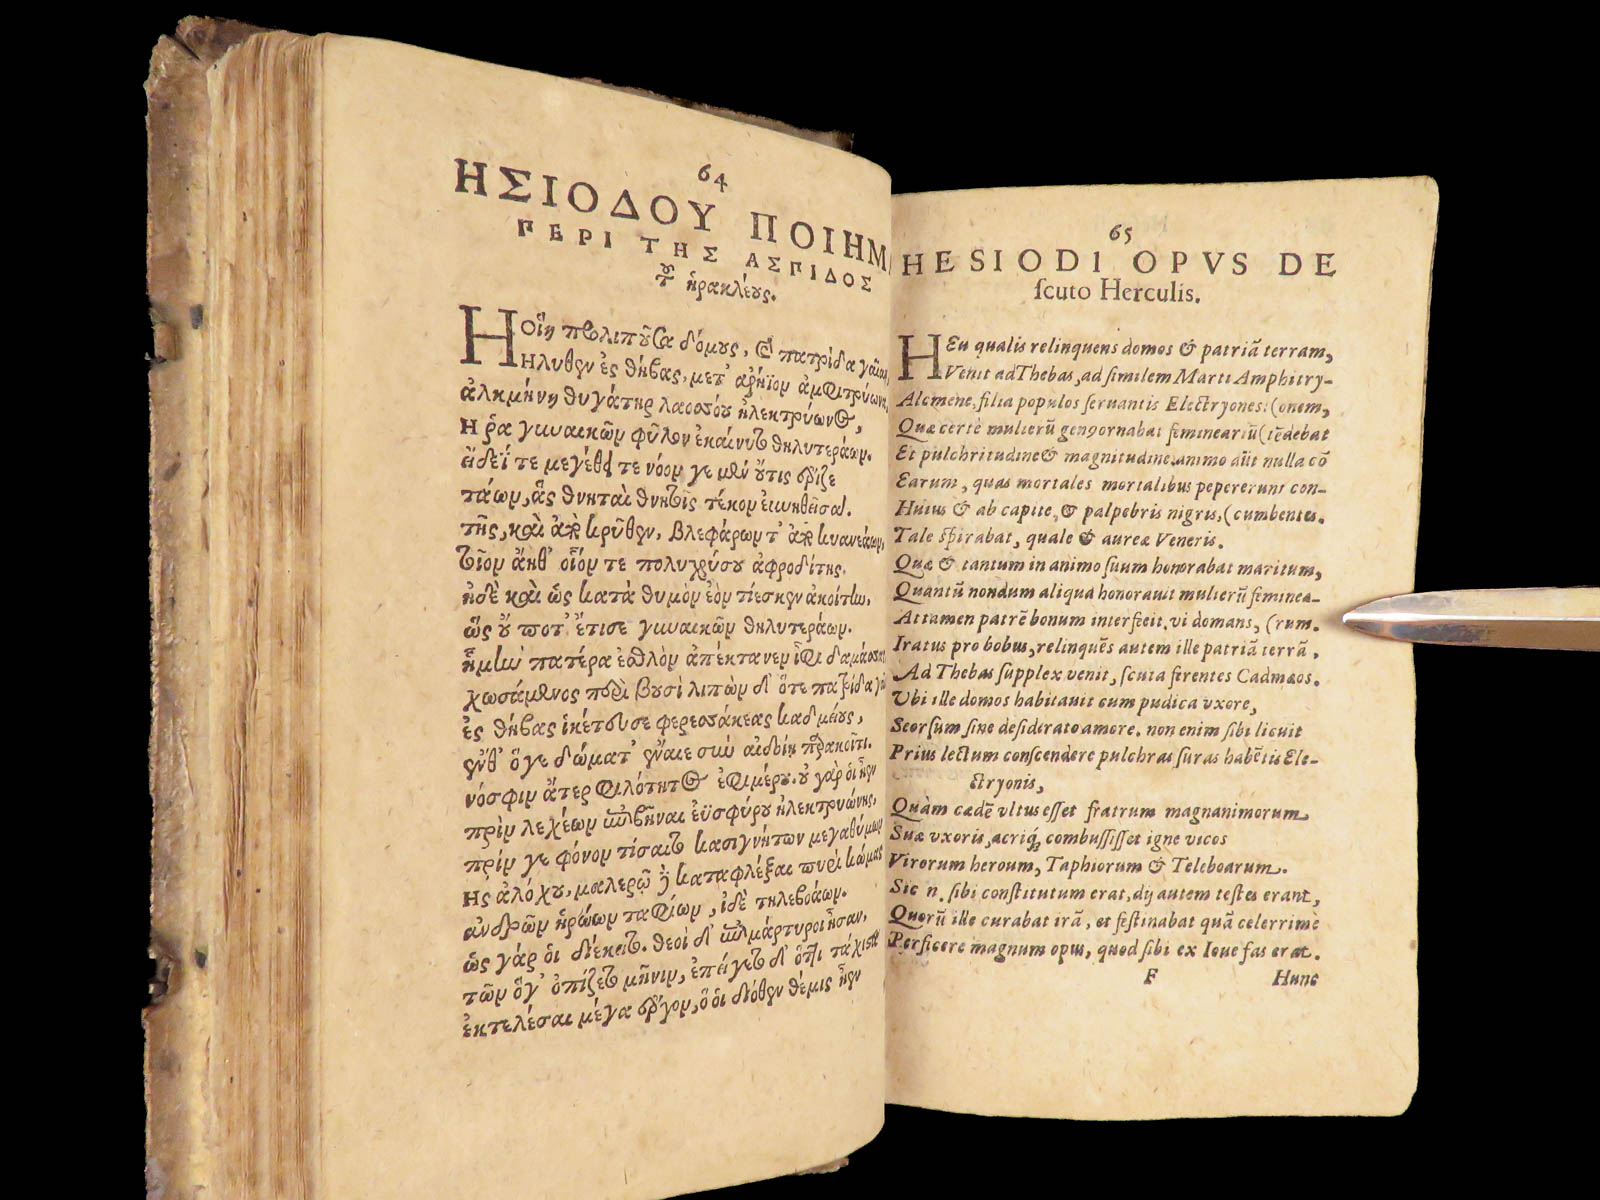 64
ΗΣΙΟΔΟΥ ΠΟΙΗΜ
ΠΕΡΙ ΤΗΣ ΑΣΠΙΔΟΣ
τοῦ ἡρακλέους.
Η Οἵη προλιποῦσα δόμους, καὶ πατρίδα γαῖαν,
Ηλυθεν ἐς θήβας, μετ' ἀρήϊον ἀμφιτρύωνα,
ἀλκμήνη θυγάτηρ λαοσσόου ἠλεκτρύωνος,
Η ῥα γυναικῶν φῦλον ἐκαίνυτο θηλυτεράων.
εἴδεΐ τε μεγέθει τε νόον γε μὲν οὔτις ἔριζε
τάων, ἃς θνηταὶ θνητοῖς τέκον εὐνηθεῖσαι.
τῆς, καὶ ἀπὸ κρῆθεν, βλεφάρων τ' ἀπὸ κυανεάων,
τοῖον ἄηθ' οἷόν τε πολυχρύσου ἀφροδίτης.
ἡδὲ καὶ ὣς κατὰ θυμὸν ἑὸν τίεσκεν ἀκοίτην,
ὡς οὔ ποτ' ἔτισε γυναικῶν θηλυτεράων.
ἦ μὴν πατέρα ἐσθλὸν ἀπέκτανεν ἶφι δαμάσσας
χωσάμενος περὶ βουσὶ λιπὼν δ' ὅτε πατρίδα γαῖ
ἐς θήβας ἱκέτευσε φερεσσάκεας καδμείους,
ἔνθ' ὅγε δώματ' ἔναιε σὺν αἰδοίῃ παρακοίτι.
νόσφιν ἄτερ φιλότητος ἐφιμέρου. οὐ γὰρ οἱ ἦεν
πρὶν λεχέων ἐπιβῆναι ἐϋσφύρου ἠλεκτρυώνης,
πρίν γε φόνον τίσαιτο κασιγνήτων μεγαθύμων
Ης ἀλόχου, μαλερῷ δὲ καταφλέξαι πυρὶ κώμας
ἀνδρῶν ἡρώων ταφίων, ἰδὲ τηλεβοάων.
ὣς γάρ οἱ διέκειτο. θεοὶ δ' ἐπιμάρτυροι ἦσαν,
τῶν ὅγ' ὀπίζετο μῆνιν, ἐπείγετο δ' ὅττι τάχιστα
ἐκτελέσαι μέγα ἔργον, ὅ οἱ διόθεν θέμις ἦεν
65
HESIODI OPVS DE
ſcuto Herculis.
HEu qualis relinquens domos & patriã terram,
Venit ad Thebas, ad ſimilem Marti Amphitry-
Alcmene, filia populos ſeruantis Electryones: (onem,
Quæ certè mulierũ genꝰ ornabat feminearũ (tẽdebat
Et pulchritudine & magnitudine animo aũt nulla cõ
Earum, quas mortales mortalibus pepererunt con-
Huius & ab capite, & palpebris nigris, (cumbentes.
Tale ſpirabat, quale & aureæ Veneris.
Quæ & tantum in animo ſuum honorabat maritum,
Quantũ nondum aliqua honorauit mulierũ feminea-
Attamen patrẽ bonum interfecit, vi domans, (rum.
Iratus pro bobus, relinquẽs autem ille patriã terrã.
Ad Thebas ſupplex venit, ſcuta ferentes Cadmæos.
Vbi ille domos habitauit cum pudica vxore,
Seorſum ſine deſiderato amore. non enim ſibi licuit
Prius lectum conſcendere pulchras ſuras habẽtis Ele-
ctryonis,
Quàm cædẽ vltus eſſet fratrum magnanimorum
Suæ vxoris, acriq́; combuſſiſſet igne vicos
Virorum heroum, Taphiorum & Teleboarum.
Sic n. ſibi conſtitutum erat, dij autem teſtes erant,
Quorũ ille curabat irã, et feſtinabat quã celerrimè
Perficere magnum opus, quod ſibi ex Ioue fas erat.
F Hunc